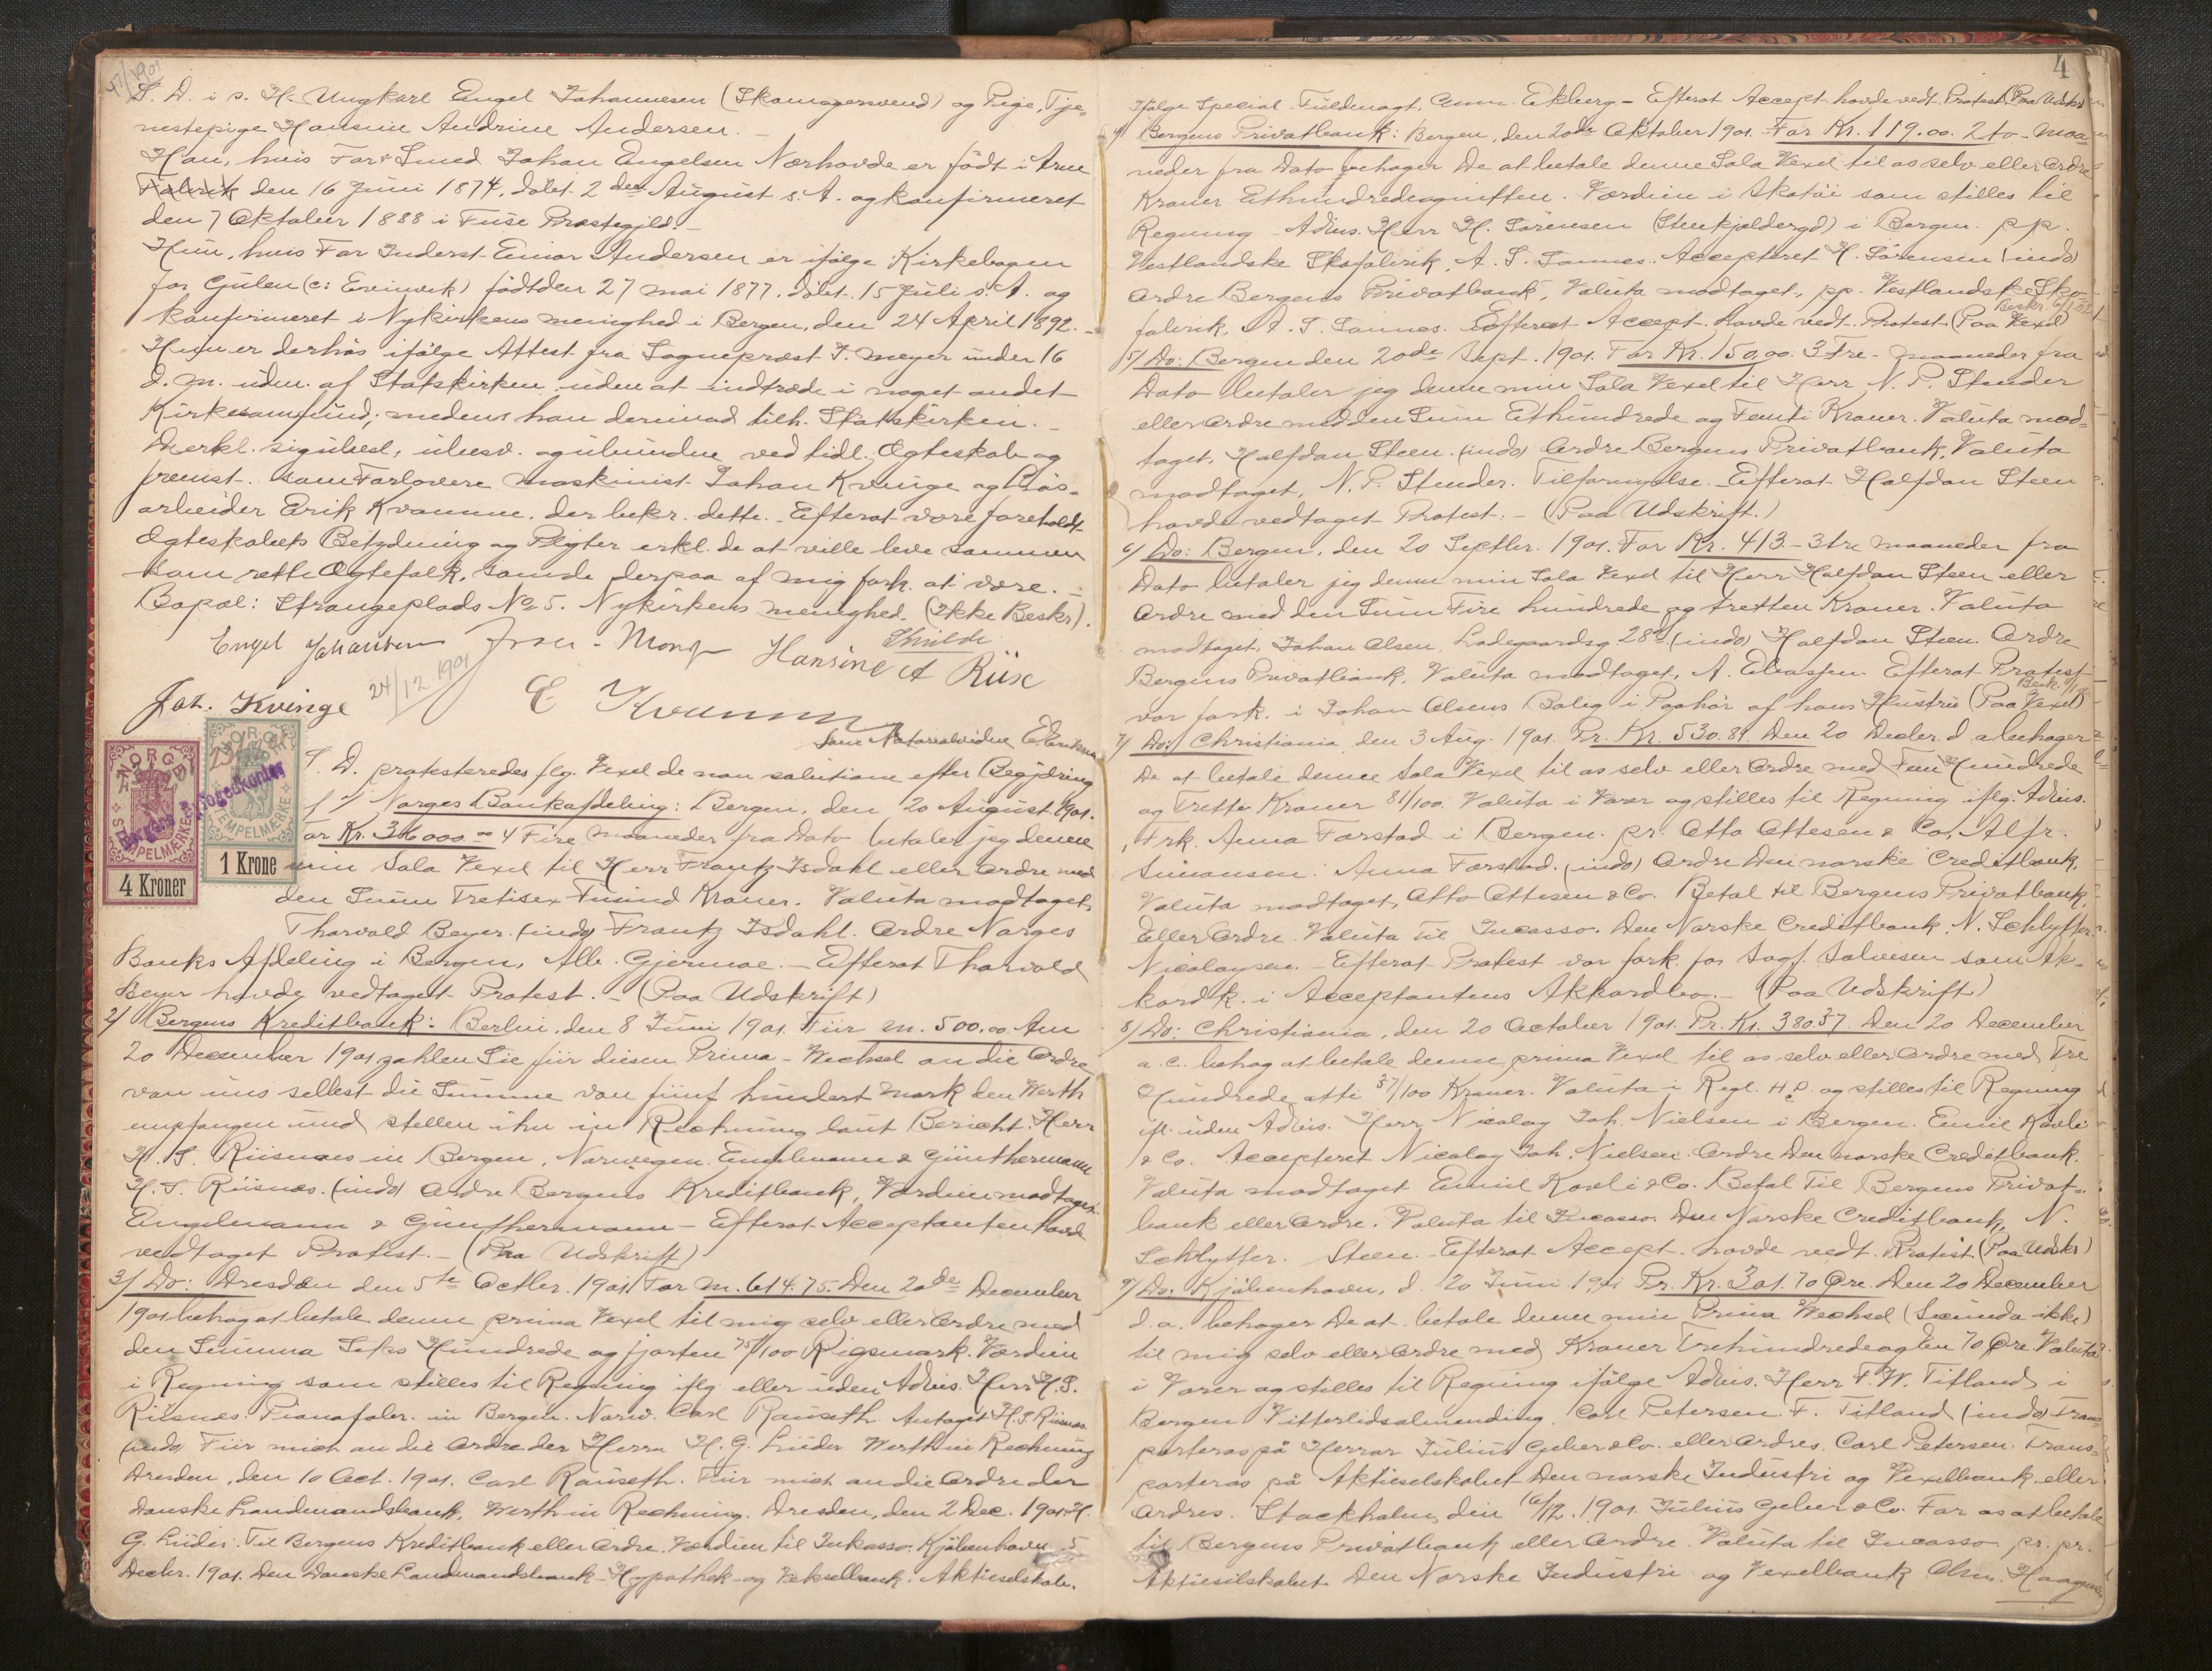 47/1901
S. D. i s. H. Ungkarl Engel Johannesen (Skomagersvend) og Pige, Tje-
nestepige Hansine Andrine Andersen. -
Han, hvis Far Smed Johan Engelsen Nærhovde er født i Arne
Fabrik den 16 Juni 1874, døbt 2den August s. A. og konfirmeret
den 7 Oktober 1888 i Fuse Præstegjeld. -
Hun, hvis Far Inderst Einar Andersen er ifølge Kirkebogen
for Gulen (c: Evinvik) født den 27 mai 1877, døbt 15 Juli s. A. og
konfirmeret i Nykirkens menighed i Bergen, den 24 April 1892. -
Hun er derhos ifølge Attest fra Sognepræst J. Meyer under 16
d. m. udm. af Statskirken uden at indtræde i noget andet
Kirkesamfund; medens han derimod tilh. Statskirken. -
De erkl. sig ubesl., ubesv. og ubundne ved tidl. Ægteskab og
fremst. som Forlovere Maskinist Johan Kvinge og Løs-
arbeider Erik Kvamme, der bekr. dette. Efterat være foreholdt
Ægteskabets Betydning og Pligter erkl. de at ville leve sammen
som rette Ægtefolk, som de derpaa af mig fork. at være. -
Bopæl: Strangeplads No 5. Nykirkens menighed. (Ikke Beskr).
Engel Johansen Hansine A Riise
Joh. Kvinge 24/12 1901 E Kvamme
Som Notarialvidne E. Eriksen
S. D. protesteredes flg. Vexel de non solutione efter Begjæring
1/ Norges Bankafdeling: Bergen, den 20 August 1901.
For Kr. 36000.00 4 Fire maaneder fra Dato betaler jeg denne
min Sola Vexel til Herr Frantz Isdahl eller Ordre med
den Sum Tretisex Tusind Kroner. Valuta modtaget,
Thorvald Beyer. (indo) Frantz Isdahl. Ordre Norges
Banks Afdeling i Bergen, Alb. Gjermoe. - Efterat Thorvald
Beyer havde vedtaget Protest. - (Paa Udskrift)
NORGE STEMPELMÆRKE 4 Kroner
NORGE STEMPELMÆRKE 1 Krone
2/ Bergens Kreditbank: Berlin, den 8 Juni 1901. Für m. 500.00 Am
20 December 1901 zahlen Sie für diesen Prima-Wechsel an die Ordre
von uns selbst die Summe von fünf hundert Mark den Werth
empfangen und stellen ihn in Rechnung laut Bericht. Herr
H. S. Riisnæs in Bergen, Norwegen. Engelmann & Günthermann
H. S. Riisnæs. (indo) Ordre Bergens Kreditbank, Værdien modtaget.
Engelmann & Günthermann - Efterat Acceptanten havde
vedtaget Protest. - (Paa Udskrift)
3/ Do: Dresden den 5te Octbr. 1901 For m. 614.75. Den 20de December
1901 behag at betale denne prima Vexel til mig selv eller Ordre med
den Summa Seks Hundrede og fjorten 75/100 Rigsmark. Værdien
i Regning som stilles til Regning iflg eller uden Advis. Herr H. S.
Riisnæs. Pianofabr. in Bergen. Norw. Carl Rauseth. Antaget H. S. Riisnæs
(indo) Für mich an die Ordre der Herrn H. G. Lüder Werth in Rechnung
Dresden, den 10 Oct. 1901. Carl Rauseth. Für mich an die Ordre der
Danske Landmandsbank, Werth in Rechnung. Dresden, den 2 Dec. 1901. H.
G. Lüder. Til Bergens Kreditbank eller Ordre. Værdien til Inkasso. Kjøbenhavn 5
Decbr. 1901. Den Danske Landmandsbank-Hypothek- og Vekselbank. Aktieselskab.
4
Ifølge Special Fuldmagt, Ekberg - Efterat Accept. havde vedt. Protest. (Paa Udskr)
4/ Bergens Privatbank: Bergen, den 20de Oktober 1901. For Kr. 119.00. 2 to maa-
neder fra Dato behager De at betale denne Sola Vexel til os selv eller Ordre
Kroner Ethundredeognitten. Værdien i Skotøi som stilles til
Regning Advis. Herr H. Sørensen (Stenkjeldergd) i Bergen. pp.
Vestlandske Skofabrik, A. S. Sannes. Accepteret H. Sørensen (indo)
Ordre Bergens Privatbank, Valuta modtaget, pp. Vestlandske Sko-
fabrik, A. S. Sannes. Efterat Accept. havde vedt. Protest. (Paa Vexel)
5/ Do: Bergen den 20de Sept. 1901. For Kr. 150.00. 3 Tre maaneder fra
Dato betaler jeg denne min Sola Vexel til Herr N. P. Stender
eller Ordre med den Sum Ethundrede og Femti Kroner. Valuta mod-
taget, Halfdan Steen. (indo) Ordre Bergens Privatbank, Valuta
modtaget, N. P. Stender. Til fornyelse. Efterat Halfdan Steen
havde vedtaget Protest. - (Paa Udskrift.)
6/ Do: Bergen, den 20 Septbr. 1901. For Kr. 413 - 3 tre maaneder fra
Dato betaler jeg denne min Sola Vexel til Herr Halfdan Steen eller
Ordre med den Sum Fire hundrede og tretten Kroner. Valuta
modtaget, Johan Olsen, Ladegaardsg. 28 (indo) Halfdan Steen. Ordre
Bergens Privatbank, Valuta modtaget, A. Eliassen. Efterat Protest
var fork. i Johan Olsens Bolig i Paahør af hans Hustru (Paa Vexel)
7/ Do: Christiania, den 3 Aug. 1901. Pr. Kr. 530.81. Den 20 Decbr. d. a. behager
De at betale denne Sola Vexel til os selv eller Ordre med Fem Hundrede
og Tretti Kroner 81/100. Valuta i Varer og stilles til Regning iflg. Advis.
Frk. Anna Farstad i Bergen. pr. Otto Ottesen & Co, Alfr.
Simonsen. Anna Farstad. (indo) Ordre Den norske Creditbank,
Valuta modtaget, Otto Ottesen & Co. Betal til Bergens Privatbank,
Eller Ordre. Valuta til Incasso. Den Norske Creditbank. N. Schlytter.
Nicolaysen. - Efterat Protest var fork. for Sagf. Salvesen som Ak-
kordk. i Acceptantens Akkordbo. - (Paa Udskrift)
8/ Do: Christiania, den 20 October 1901. Pr. Kr. 380.37. Den 20 December
a. c. behag at betale denne prima Vexel til os selv eller Ordre med Tre
Hundrede otti 37/100 Kroner. Valuta i Regl. H. D. og stilles til Regning
ifl. uden Advis. Herr Nicolay Joh. Nielsen i Bergen. Emil Kavli
& Co. Accepteret Nicolay Joh. Nielsen. Ordre Den norske Creditbank.
Valuta modtaget Emil Kavli & Co. Betal til Bergens Privat-
bank eller Ordre. Valuta til Incasso. Den Norske Creditbank, N.
Schlytter. Steen. Efterat Accept. havde vedt. Protest. (Paa Udskr)
9/ Do. Kjøbenhavn, d. 20 Juni 1901 Pr. Kr. 301.70 Øre. Den 20 December
d. a. behager De at betale denne min Prima Wechsel (Secunda ikke)
til mig selv eller Ordre med Kroner Trehundredeogen 70 Øre. Valuta
i Varer og stilles til Regning ifølge Advis. Herr F. W. Titland i
Bergen Vitterlidsalmending. Carl Petersen. F. Titland (indo) Trans-
porteras på Herrar Julius Geber & Co. eller Ordres. Carl Petersen. Trans-
porteras på Aktieselskabet Den norske Industri og Vexelbank eller
Ordres. Stockholm den 16/12. 1901. Julius Geber & Co. For os at betale
til Bergens Privatbank eller Ordre. Valuta til Incasso pr. pr.
Aktieselskabet Den Norske Industri og Vexelbank Chr.